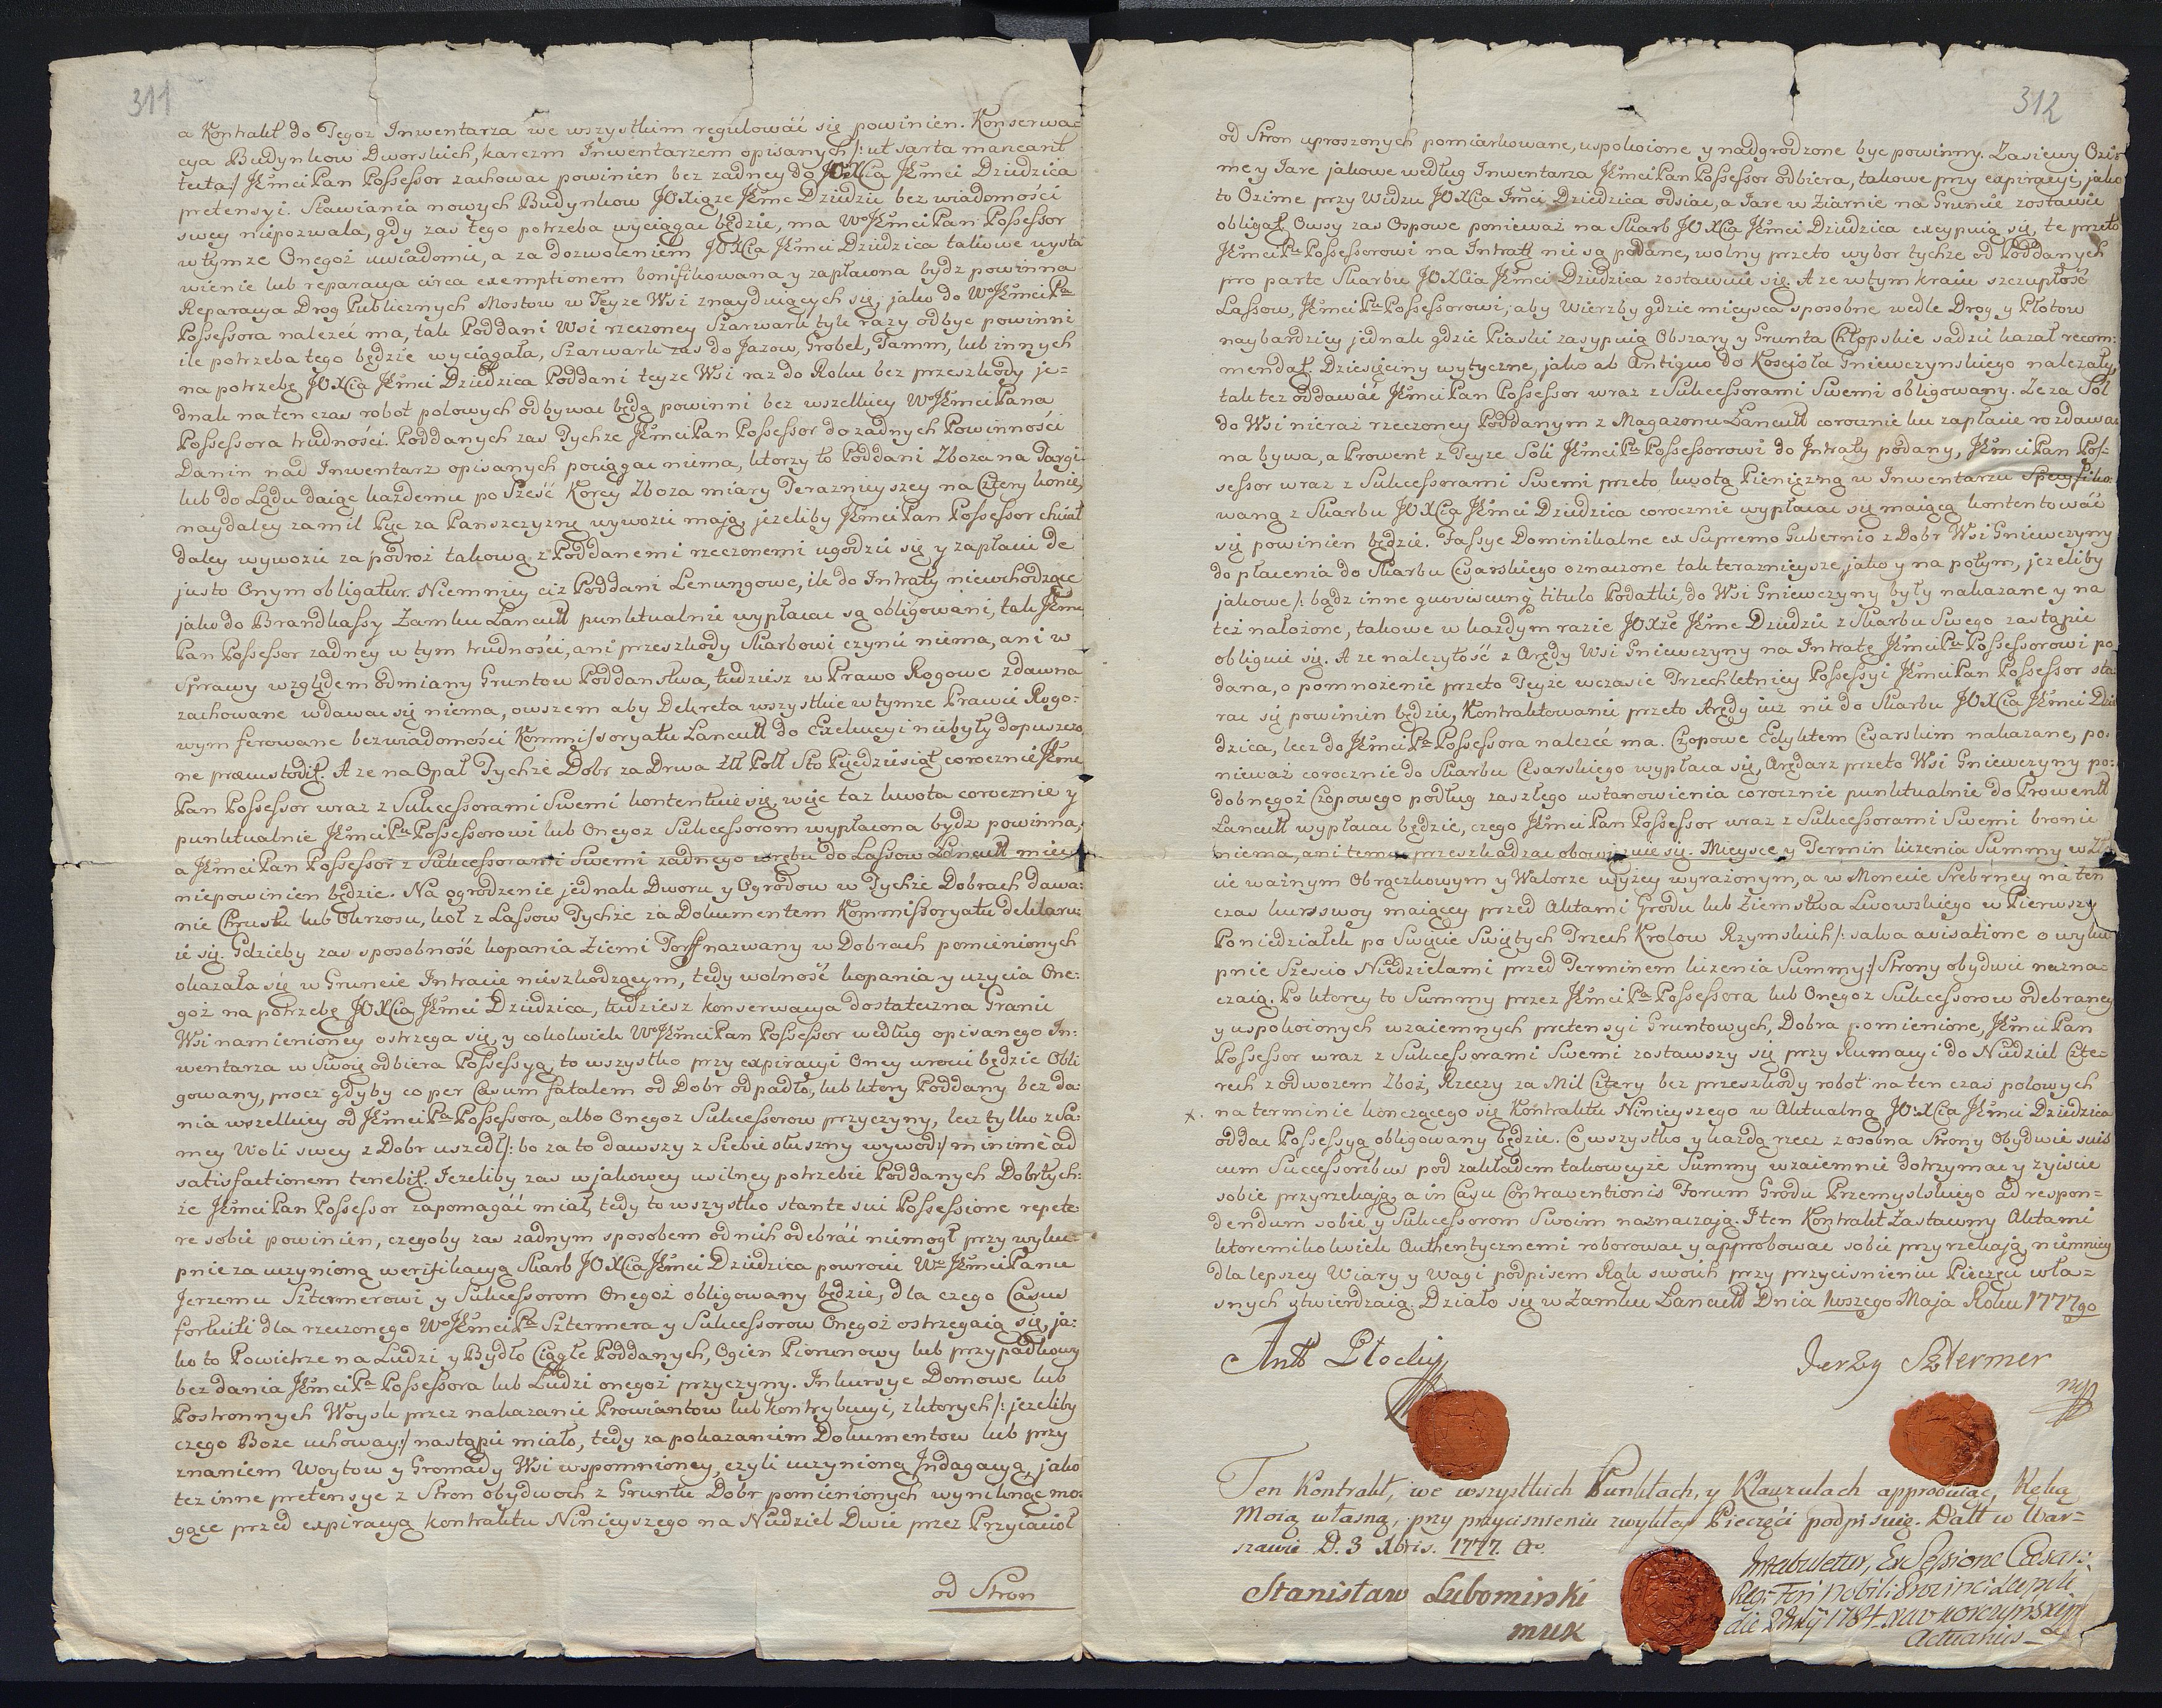 311
a Kontrakt do Tegoż Inwentarza we wszystkim regulowáć się powinien. Konserwa=
cya Budynkow Dworskich, karczm Inwentarzem opisanych /: ut sarta maneant
tecta :/ JEmci Pan Possessor zachowac powinien bez zadney do JOXcia JEmci Dziedzica
pretensyi. Stawiania nowych Budynkow JOXiąże JEmc Dziedzic bez wiadomości
swey niepozwala, gdy zas tego potrzeba wyciągac będzie, ma Wo JEmci Pan Possessor
w tymze Onegoż uwiadomic, a za dozwoleniem JOXcia JEmci Dziedzica takowe wysta
wienie lub reparacya circa exemptionem bonifikowana y zapłacona bydz powinna
Reparacya Drog Publicznych Mostow w Teyze Wsi znayduiących się, jako do Wo JEmci Pa
Possessora nalezeć ma, tak Poddani Wsi rzeczoney Szarwark tyle razy odbyc powinni
ile potrzeba tego będzie wyciągała, Szarwark zas do Jazow, Grobel, Tamm, lub innych
na potrzebę JOXcia JEmci Dziedzica Poddani teyze Wsi raz do Roku bez przeszkody je=
dnak na ten czas robot polowych odbywac będą powinni bez wszelkiey Wo JEmci Pana
Possessora trudności. Poddanych zas Tychze JEmci Pan Possessor do zadnych Powinności
Danin nad Inwentarz opisanych pociągac niema, ktorzy to Poddani Zboza na Targi
lub do Lądu daiąc kazdemu po Sześć Korcy Zboza miary Teraznieyszey na Cztery konie,
naydaley zamil Pięc za Panszczyznę wywozic mają, jezeliby JEmci Pan Possessor chciał
daley wywozic za podroż takową z Poddanemi rzeczonemi ugodzic się y zapłacic de
justo Onym obligatur. Niemniey ciż Poddani Lenungowe, ile do Intraty niewchodzące
jako do Brandkassy Zamku Lancutt punktualnie wypłacac są obligowani, tak JEmc
Pan Possessor zadney w tym trudności, ani przeszkody Skarbowi czynic niema, ani w
Sprawy względem odmiany Gruntow Poddanstwa, tudziesz w Prawo Rogowe zdawna
zachowane wdawac się niema, owszem aby Dekreta wszystkie w tymze Prawie Rogo=
wym ferowane bez wiadomości Kommissoryatu Lancutt do Exekucyi niebyły dopuszczo
ne præcustodit. A ze na Opał Tychże Dobr za Drwa Złł Poll Sto Pięćdziesiąt corocznie JEmc
Pan Possessor wraz z Sukcessorami Swemi kontentuie się, więc taz kwota corocznie y
punktualnie JEmci Pu Possessorowi lub Onegoz Sukcessorom wypłacona bydz powinna,
a JEmci Pan Possessor z Sukcessorami Swemi zadnego wrębu do Lassow Lancutt miec
niepowinien będzie. Na ogrodzenie jednak Dworu y Ogrodow w Tychże Dobrach dawa=
nie Chrustu lub Okrzosu, koł z Lassow Tychże za Dokumentem Kommissoryatu deklaru=
ie się. Gdzieby zas sposobność kopania Ziemi Torff nazwany w Dobrach pomienionych
okazała się w Gruncie Intracie nieszkodzącym, tedy wolność kopania y uzycia One=
goż na potrzebę JOXcia JEmci Dziedzica, tudziesz konserwacya dostateczna Granic
Wsi namienioney ostrzega się, y cokolwiek Wo JEmci Pan Possessor według opisanego In=
wentarza w Swoię odbiera Possessyą, to wszystko przy expiracyi Oney wrocic będzie Obli
gowany, procz gdyby co per Casum fatalem od Dobr odpadło, lub ktory Poddany bez da=
nia wszelkiey od JEmci Pa Possessora, albo Onegoz Sukcessorow przyczyny, lecz tylko z Sa=
mey Woli swey z Dobr uszedł /: bo za to dawszy z Siebie słuszny wywod :/ minimè ad
satisfactionem tenebit. Jezeliby zas w jakowey usilney potrzebie Poddanych Dobr tych=
że JEmci Pan Possessor zapomagáć miał, tedy to wszystko stante sui Possessione repete=
re sobie powinien, czegoby zas zadnym sposobem od nich odebráć niemogł przy wyku=
pnie za uczynioną weryfikacyą Skarb JOXcia JEmci Dziedzica powrocic Wo JEmci Panu
Jerzemu Sztermerowi y Sukcessorom Onegoż obligowany będzie, dla czego Casus
fortuiti dla rzeczonego Wo JEmci Pa Sztermera y Sukcessorow Onegoż ostrzegaią się, ja=
ko to Powietrze na Ludzi y Bydło Ciągłe Poddanych, Ogien Piorunowy lub przypadkowy
bez dania JEmci Pa Possessora lub Ludzi onegoż przyczyny. Inkursye Domowe lub
Postronnych Woysk przez nakazanie Prowiantow lub kontrybucyi, z ktorych /: jezeliby
czego Boze uchoway :/ nastąpic miało, tedy za pokazaniem Dokumentow lub przy
znaniem Woytow y Gromady Wsi wspomnioney, czyli uczynioną Indagacyą, jako
tez inne pretensye z Stron obydwoch z Gruntu Dobr pomienionych wyniknąc mo=
gące przed expiracyą kontraktu Ninieyszego na Niedziel Dwie przez Przyiacioł
od Stron
312
od Stron uproszonych pomiarkowane, uspokoione y nadgrodzone byc powinny. Zasiewy Ozi=
me y Jare jakowe według Inwentarza JEmci Pan Possessor odbiera, takowe przy expiracyi, jako
to Ozime przy Widzu JOXcia Jmci Dziedzica odsiac, a Jare w Ziarnie na Gruncie zostawic
obligat. Owsy zas Ospowe ponieważ na Skarb JOXcia JEmci Dziedzica excypuią się, te przeto
JEmci Pu Possessorowi na Intratę nie są podane, wolny przeto wybor tychze od Poddanych
pro parte Skarbu JOXcia JEmci Dziedzica zostawuie się. A ze w tym kraiu szczupłość
Lassow, JEmci Pu Possessorowi, aby Wierzby gdzie mieysca sposobne wedle Drog y Płotow
naybardziey jednak gdzie Piaski zasypuią Obszary y Grunta Chłopskie sadzić kazał recom=
mendat. Dziesięciny wytyczne, jako ab Antiquo do Kościoła Gniewczynskiego nalezały,
tak tez oddawáć JEmci Pan Possessor wraz z Sukcessorami Swemi obligowany. Ze za Sol
do Wsi nieraz rzeczoney Poddanym z Magazonu Lancutt corocznie ku zapłacie rozdawac
na bywa, a Prowent z Teyze Soli JEmci Pu Possessorowi do Intraty podany, JEmci Pan Pos=
sessor wraz z Sukcessorami Swemi przeto kwotą Pieniężną w Inwentarzu Specyfiko=
waną z Skarbu JOXcia JEmci Dziedzica corocznie wypłacac się maiącą kontentowáć
się powinien będzie. Fassye Dominikalne ex Supremo Gubernio z Dobr Wsi Gniewczyny
do płacenia do Skarbu Cesarskiego oznaczone tak teraznieysze, jako y na potym, jezeliby
jakowe /: bądz inne quoviscunq titulo Podatki, do Wsi Gniewczyny były nakazane y na
też nałożone, takowe w kazdym razie JOXże JEmc Dziedzic z Skarbu Swego zastąpic
obliguie się. A ze nalezytość z Arędy Wsi Gniewczyny na Intratę JEmci Pu Possessorowi po
dana, o pomnożenie przeto Teyże wczasie Trzechletniey Possessyi JEmci Pan Possessor sta=
rac się powinien będzie, Kontraktowanie przeto Arędy iuz nie do Skarbu JOXcia JEmci Dzie
dzica, lecz do JEmci Pa Possessora nalezéć ma. Czopowe Edyktem Cesarskim nakazane, po=
nieważ corocznie do Skarbu Cesarskiego wypłaca się, Arędarz przeto Wsi Gniewczyny po=
dobnegoż Czopowego podług zaszłego ustanowienia corocznie punktualnie do Prowentt
Lancutt wypłacac będzie, czego JEmci Pan Possessor wraz z Sukcessorami Swemi bronic
niema, ani temu przeszkadzac obowiązuie się. Mieysce y Termin liczenia Summy w Zło
cie ważnym Obrączkowym y Walorze wyżey wyrażonym, a w Monecie Srebrney na ten
czas kurs swoy maiącey przed Aktami Grodu lub Ziemstwa Lwowskiego w Pierwszy
Poniedziałek po Swięcie Swiętych Trzech Krolow Rzymskich /: salva avisatione o wyku
pnie Szescio Niedzielami przed Terminem liczenia Summy :/ Strony obydwie nazna=
czaią. Po ktorey to Summy przez JEmci Pa Possessora lub Onegoz Sukcessorow odebraney
y uspokoionych wzaiemnych pretensyi Gruntowych, Dobra pomienione, JEmci Pan
Possessor wraz z Sukcessorami Swemi zostawszy się przy Rumacyi do Niedziel Czte=
rech z odwozem Zboż, Rzeczy za Mil Cztery bez przeszkody robot na ten czas polowych
x. na terminie konczącego się Kontraktu Ninieyszego w Aktualną JO:Xcia JEmci Dziedzica
oddac Possessyą obligowany będzie. Co wszystko y kazdą rzecz z osobna Strony Obydwie suis
cum Successoribus pod zakładem takoweyże Summy wzaiemnie dotrzymac y zyiscic
sobie przyrzekają, a in Casu Contraventionis Forum Grodu Przemyslskiego ad respon=
dendum sobie y Sukcessorom Swoim naznaczają. I ten Kontrakt Zastawny Aktami
ktoremikolwiek Authentycznemi roborowac y approbowac sobie przyrzekają, niemniey
dla lepszey Wiary y Wagi podpisem Rąk swoich przy przycisnieniu Pieczęci włas=
snych stwierdzaią. Działo się w Zamku Lancutt Dnia 1wszego Maja Roku 1777go
Antt Płocky
Jerzy Sztermer
mp
Ten Kontrakt, we wszystkich Punktach, y Klauzulach approbuiąc, Ręką
Moią własną, przy przycisnieniu zwykłey Pieczęci podpisuię. Datt w War=
szawie D. 3 Xbris. 1777. Ao.
Stanisław Lubomirski
MWK
Intabuletur, Ex Sessione Cæsar:
Reg: Fori Nobil: Provinci Leopoli
die 1784
Actuarius